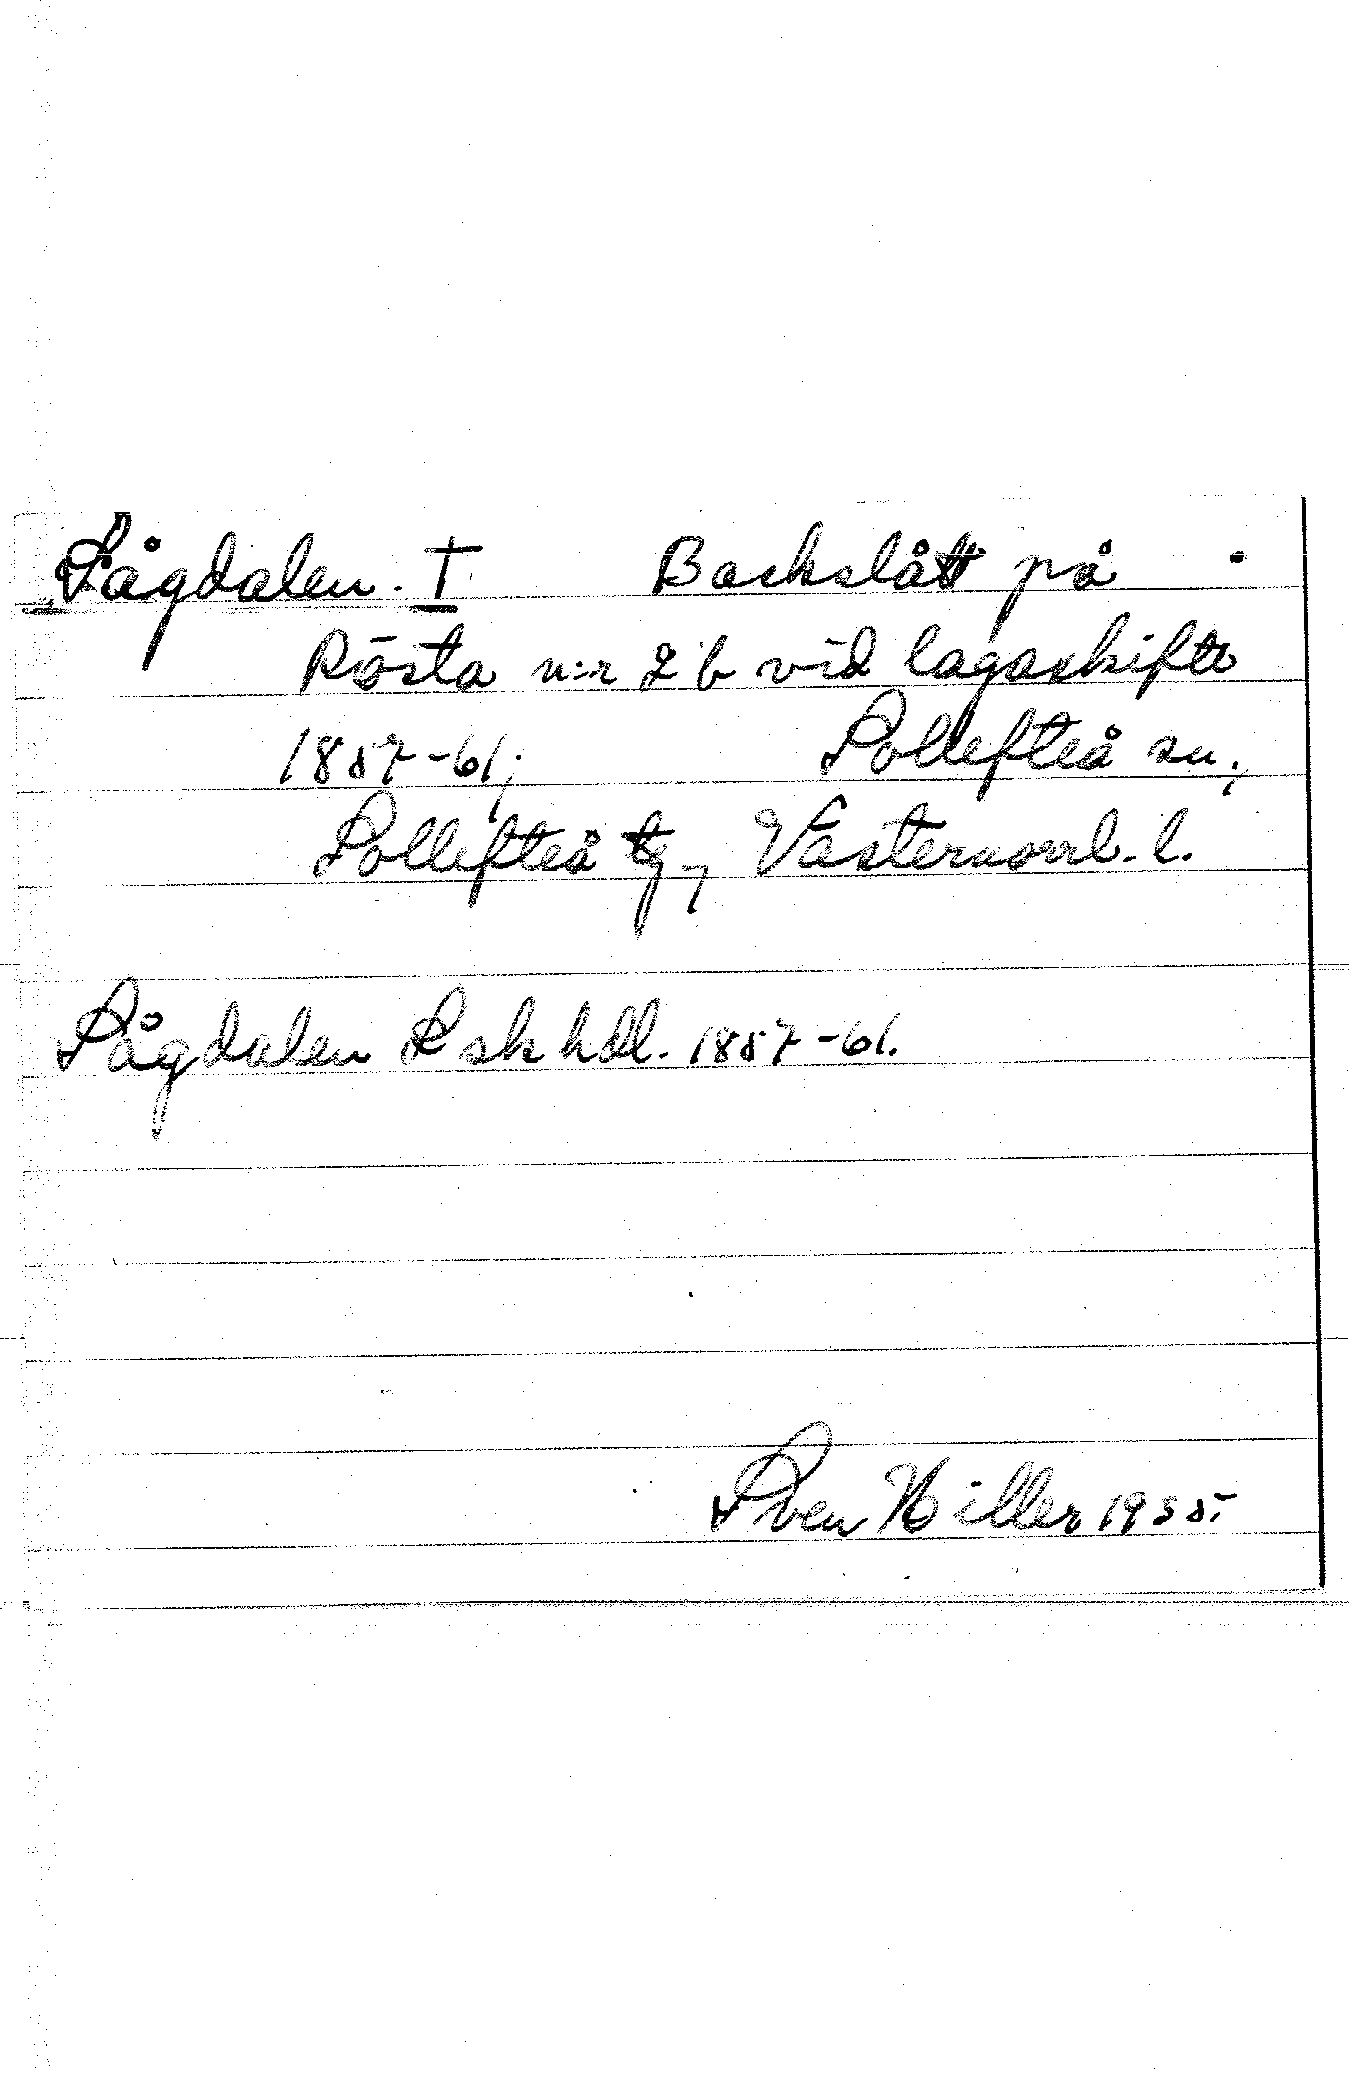 Sågdalen. I Backslått på
Rösta n:r 2 b vid lagaskifte
1857-61; Sollefteå sn.,
Sollefteå tg., Västernorrl. l.
Sågdalen Lskhdl. 1857-61.
Sven Hiller 1935.